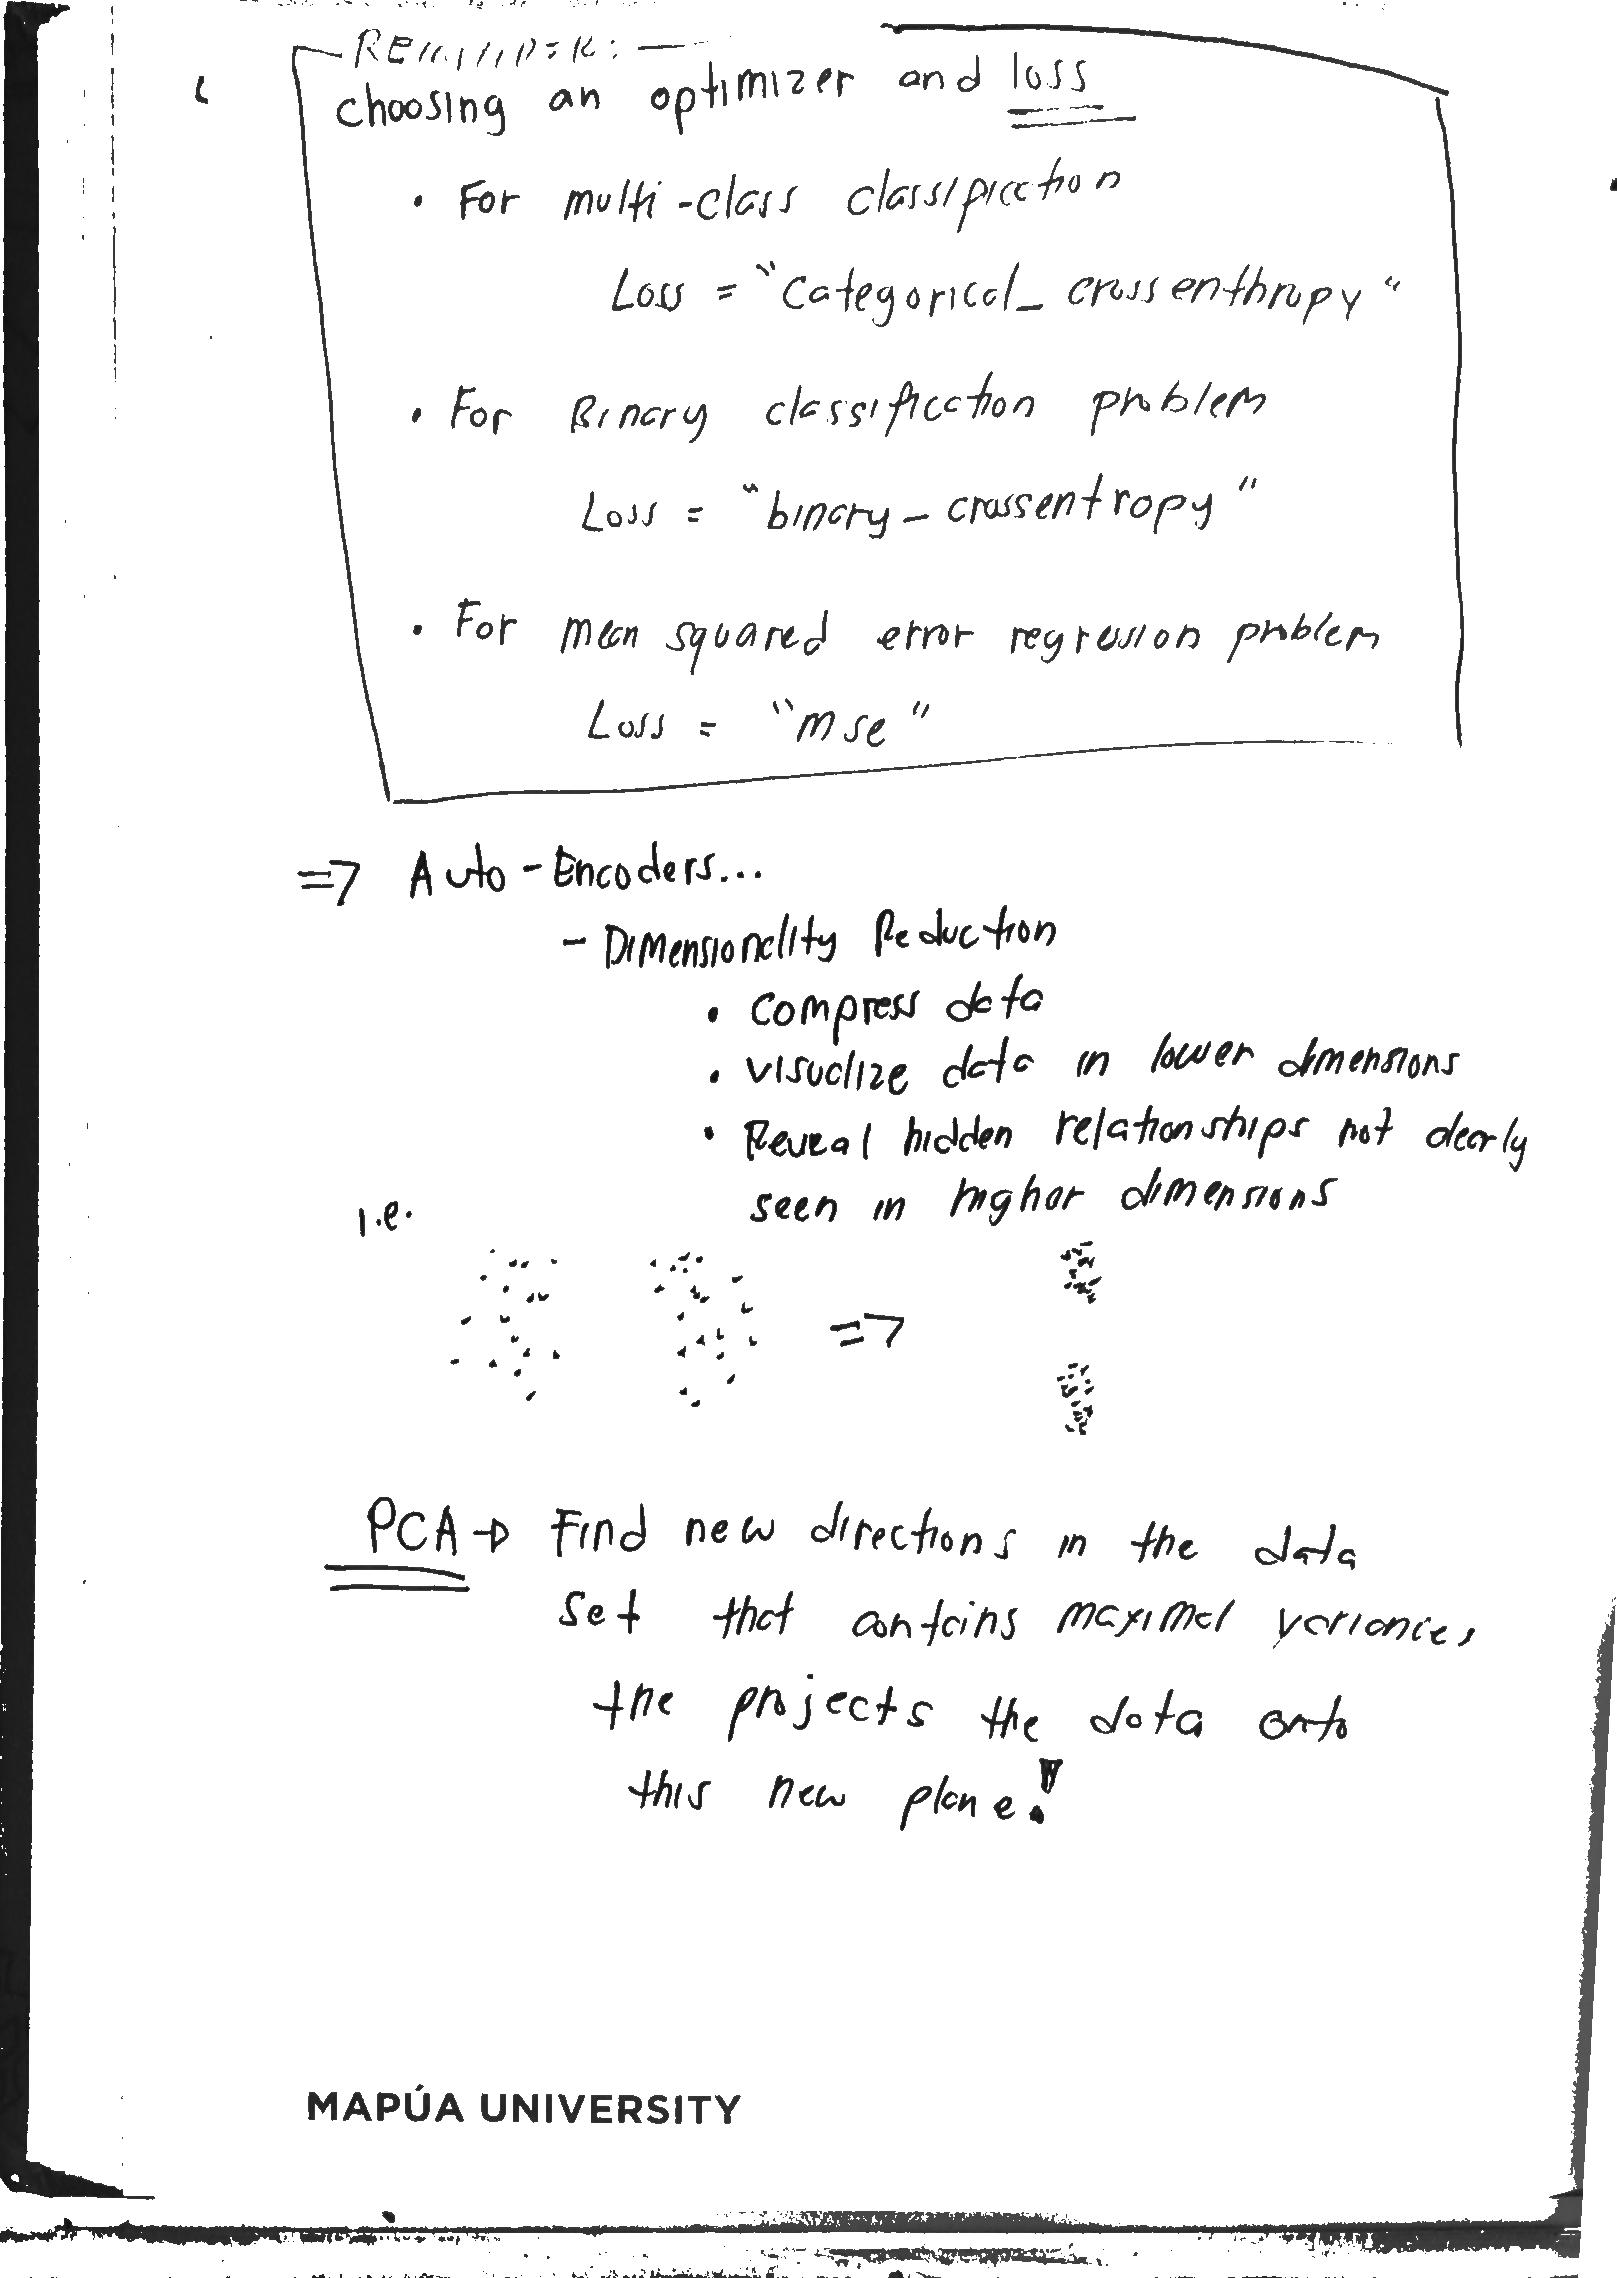 REMINDER:
choosing an optimizer and loss
• For multi-class classification
Loss = "categorical_crossenthropy"
• For Binary classification problem
Loss = "binary_crossentropy"
• For mean squared error regression problem
Loss = "mse"
=> Auto-Encoders...
- Dimensionality Reduction
• compress data
• visualize data in lower dimensions
• Reveal hidden relationships not clearly
seen in higher dimensions
i.e.
=>
PCA → Find new directions in the data
set that contains maximal variance,
the projects the data onto
this new plane!
MAPÚA UNIVERSITY